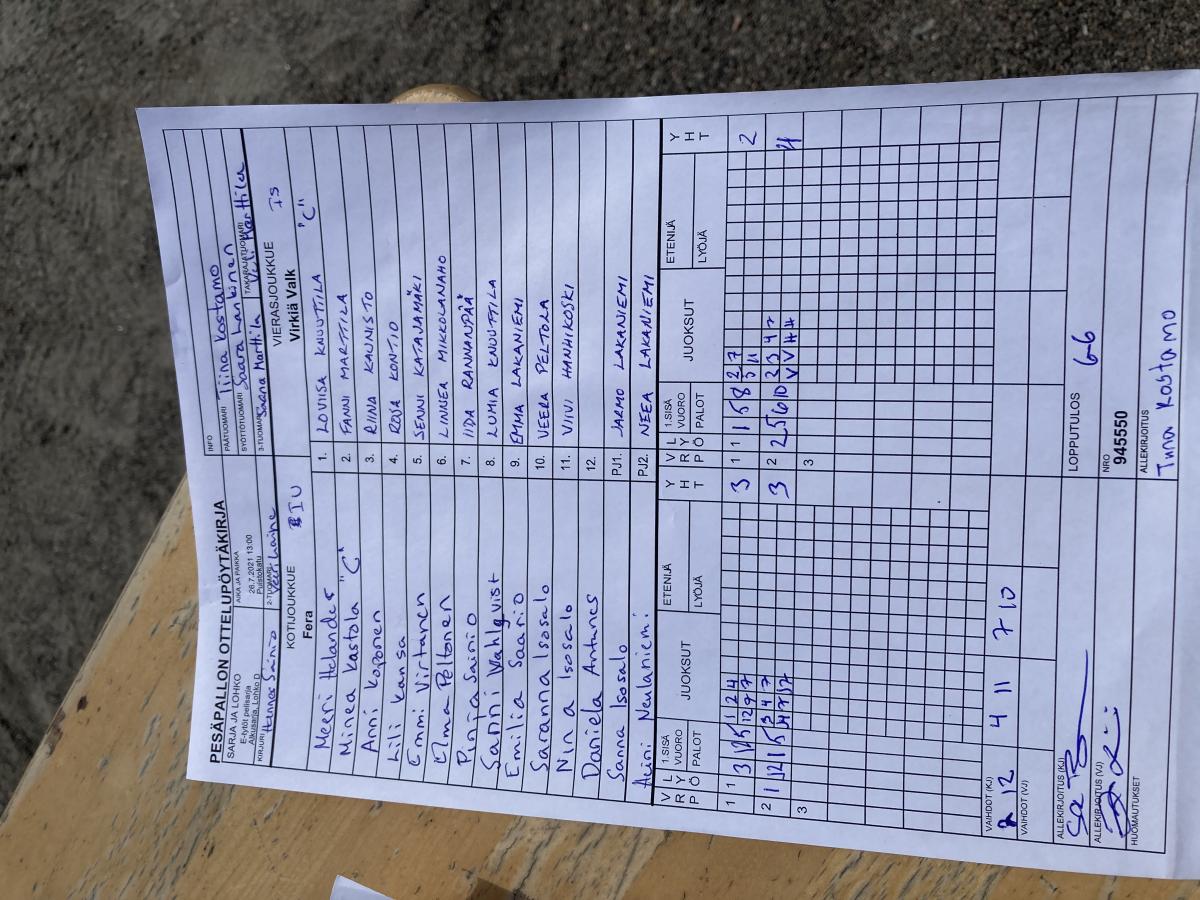 PESÄPALLON OTTELUPÖYTÄKIRJA
SARJA JA LOHKO
E-tytöt pelisarja
Alkusarja, Lohko D
AIKA JA PAIKKA
26.7.2021 13:00
Puistokatu
INFO
PÄÄTUOMARI Tiina Kostamo
SYÖTTÖTUOMARI Saara Hankinen
KIRJURI Hannes Sainio
2-TUOMARI
3-TUOMARI Saana Marttila
TAKARAJATUOMARI Veli Marttila
KOTIJOUKKUE
Fera
IU
VIERASJOUKKUE
Virkiä Valk
JS
Meeri Helander
Minea Kastola "C"
Anni Koponen
Lili Kansa
Emmi Virtanen
Elma Peltonen
Pinja Sainio
Sanni Wahlqvist
Emilia Saario
Saranna Isosalo
Nina Isosalo
Daniela Antunes
Sanna Isosalo
Heini Neulaniemi
1. LOVIISA KNUUTTILA "C"
2. FANNI MARTTILA
3. RIINA KAUNISTO
4. ROSA KONTIO
5. SENNI KATAJAMÄKI
6. LINNEA MIKKOLANAHO
7. IIDA RANNANPÄÄ
8. LUMIA KNUUTTILA
9. EMMA LAKANIEMI
10. VEERA PELTOLA
11. VIIVI HANHIKOSKI
12.
PJ1. JARMO LAKANIEMI
PJ2. NEEA LAKANIEMI
V L
R Y
P Ö
1.SISÄ
VUORO
PALOT
JUOKSUT
ETENIJÄ
LYÖJÄ
Y
H
T
V L
R Y
P Ö
1.SISÄ
VUORO
PALOT
JUOKSUT
ETENIJÄ
LYÖJÄ
Y
H
T
1 1 3 12 5 1 2 4 3
12 9 7
2 1 12 1 5 3 4 7 3
3
1 1 1 5 8 2 7 2
5 11
2 2 5 6 10 2 3 4 7 4
V V H H
3
VAIHDOT (KJ)
12 4 11 7 10
VAIHDOT (VJ)
ALLEKIRJOITUS (KJ)
ALLEKIRJOITUS (VJ)
HUOMAUTUKSET
LOPPUTULOS 6-6
NRO
945550
ALLEKIRJOITUS
Tiina Kostamo